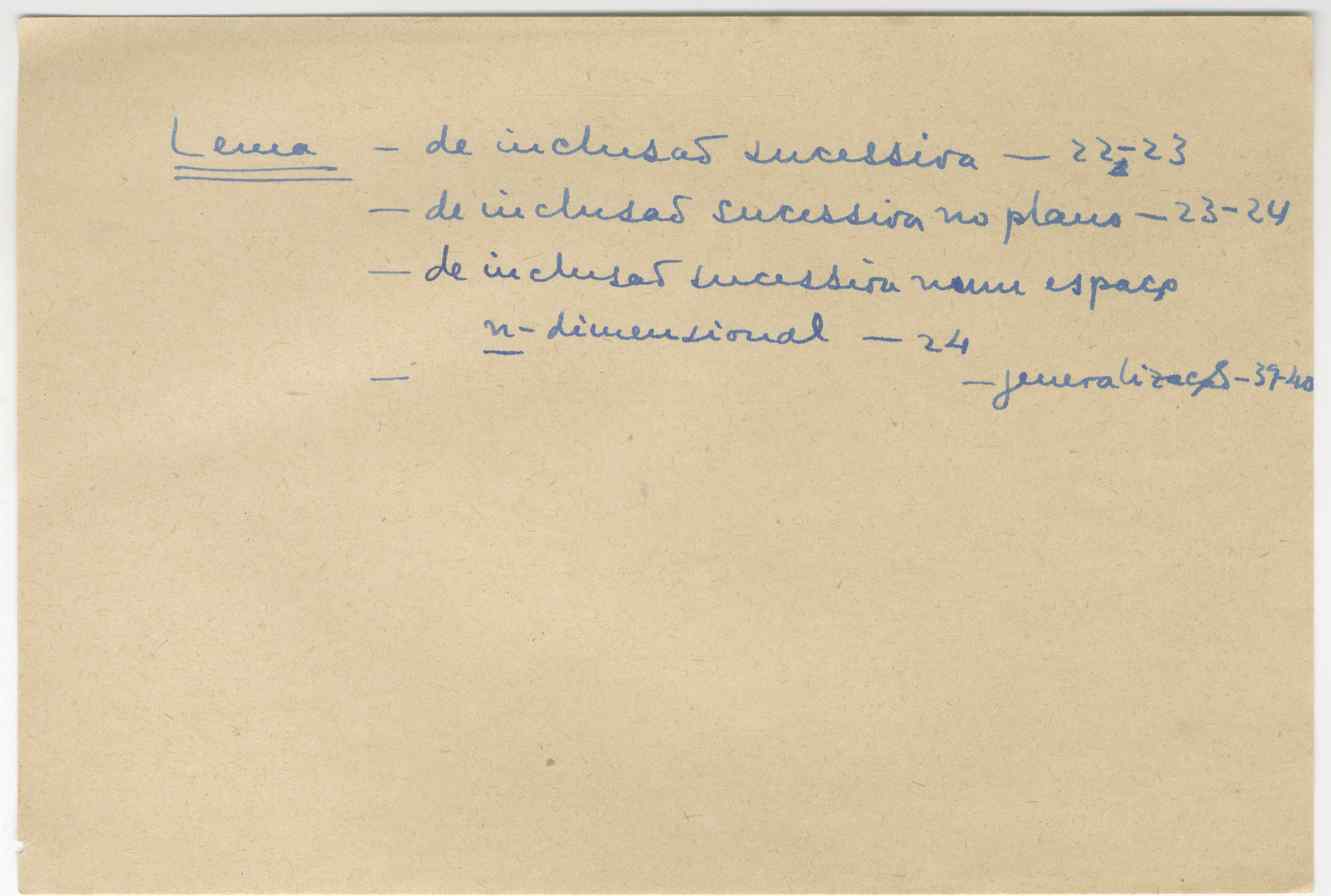 Lema — de inclusão sucessiva — 22-23
— de inclusão sucessiva no plano — 23-24
— de inclusão sucessiva num espaço
n-dimensional — 24
— — generalização - 39-40